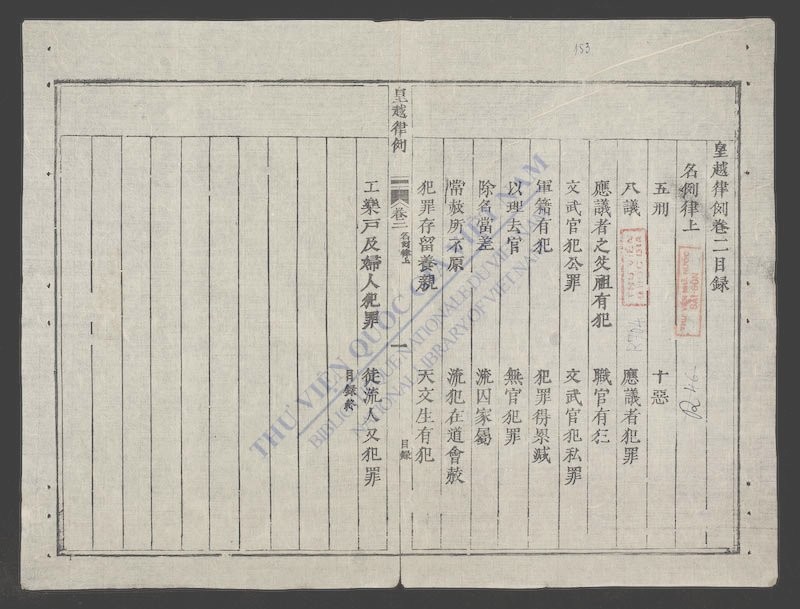 153
皇越律例卷二目録
名例律上
五刑 十惡
八議 應議者犯罪
應議者之父祖有犯 職官有犯
文武官犯公罪 文武官犯私罪
軍籍有犯 犯罪得累減
以理去官 無官犯罪
除名當差 流囚家屬
常赦所不原 流犯在道會赦
犯罪存留養親 天文生有犯
皇越律例 卷二 名例律上 一 目録
工樂戸及婦人犯罪 徒流人又犯罪
目録終
THƯ VIỆN QUỐC GIA VIỆT NAM
BIBLIOTHÈQUE NATIONALE DU VIETNAM
NATIONAL LIBRARY OF VIETNAM